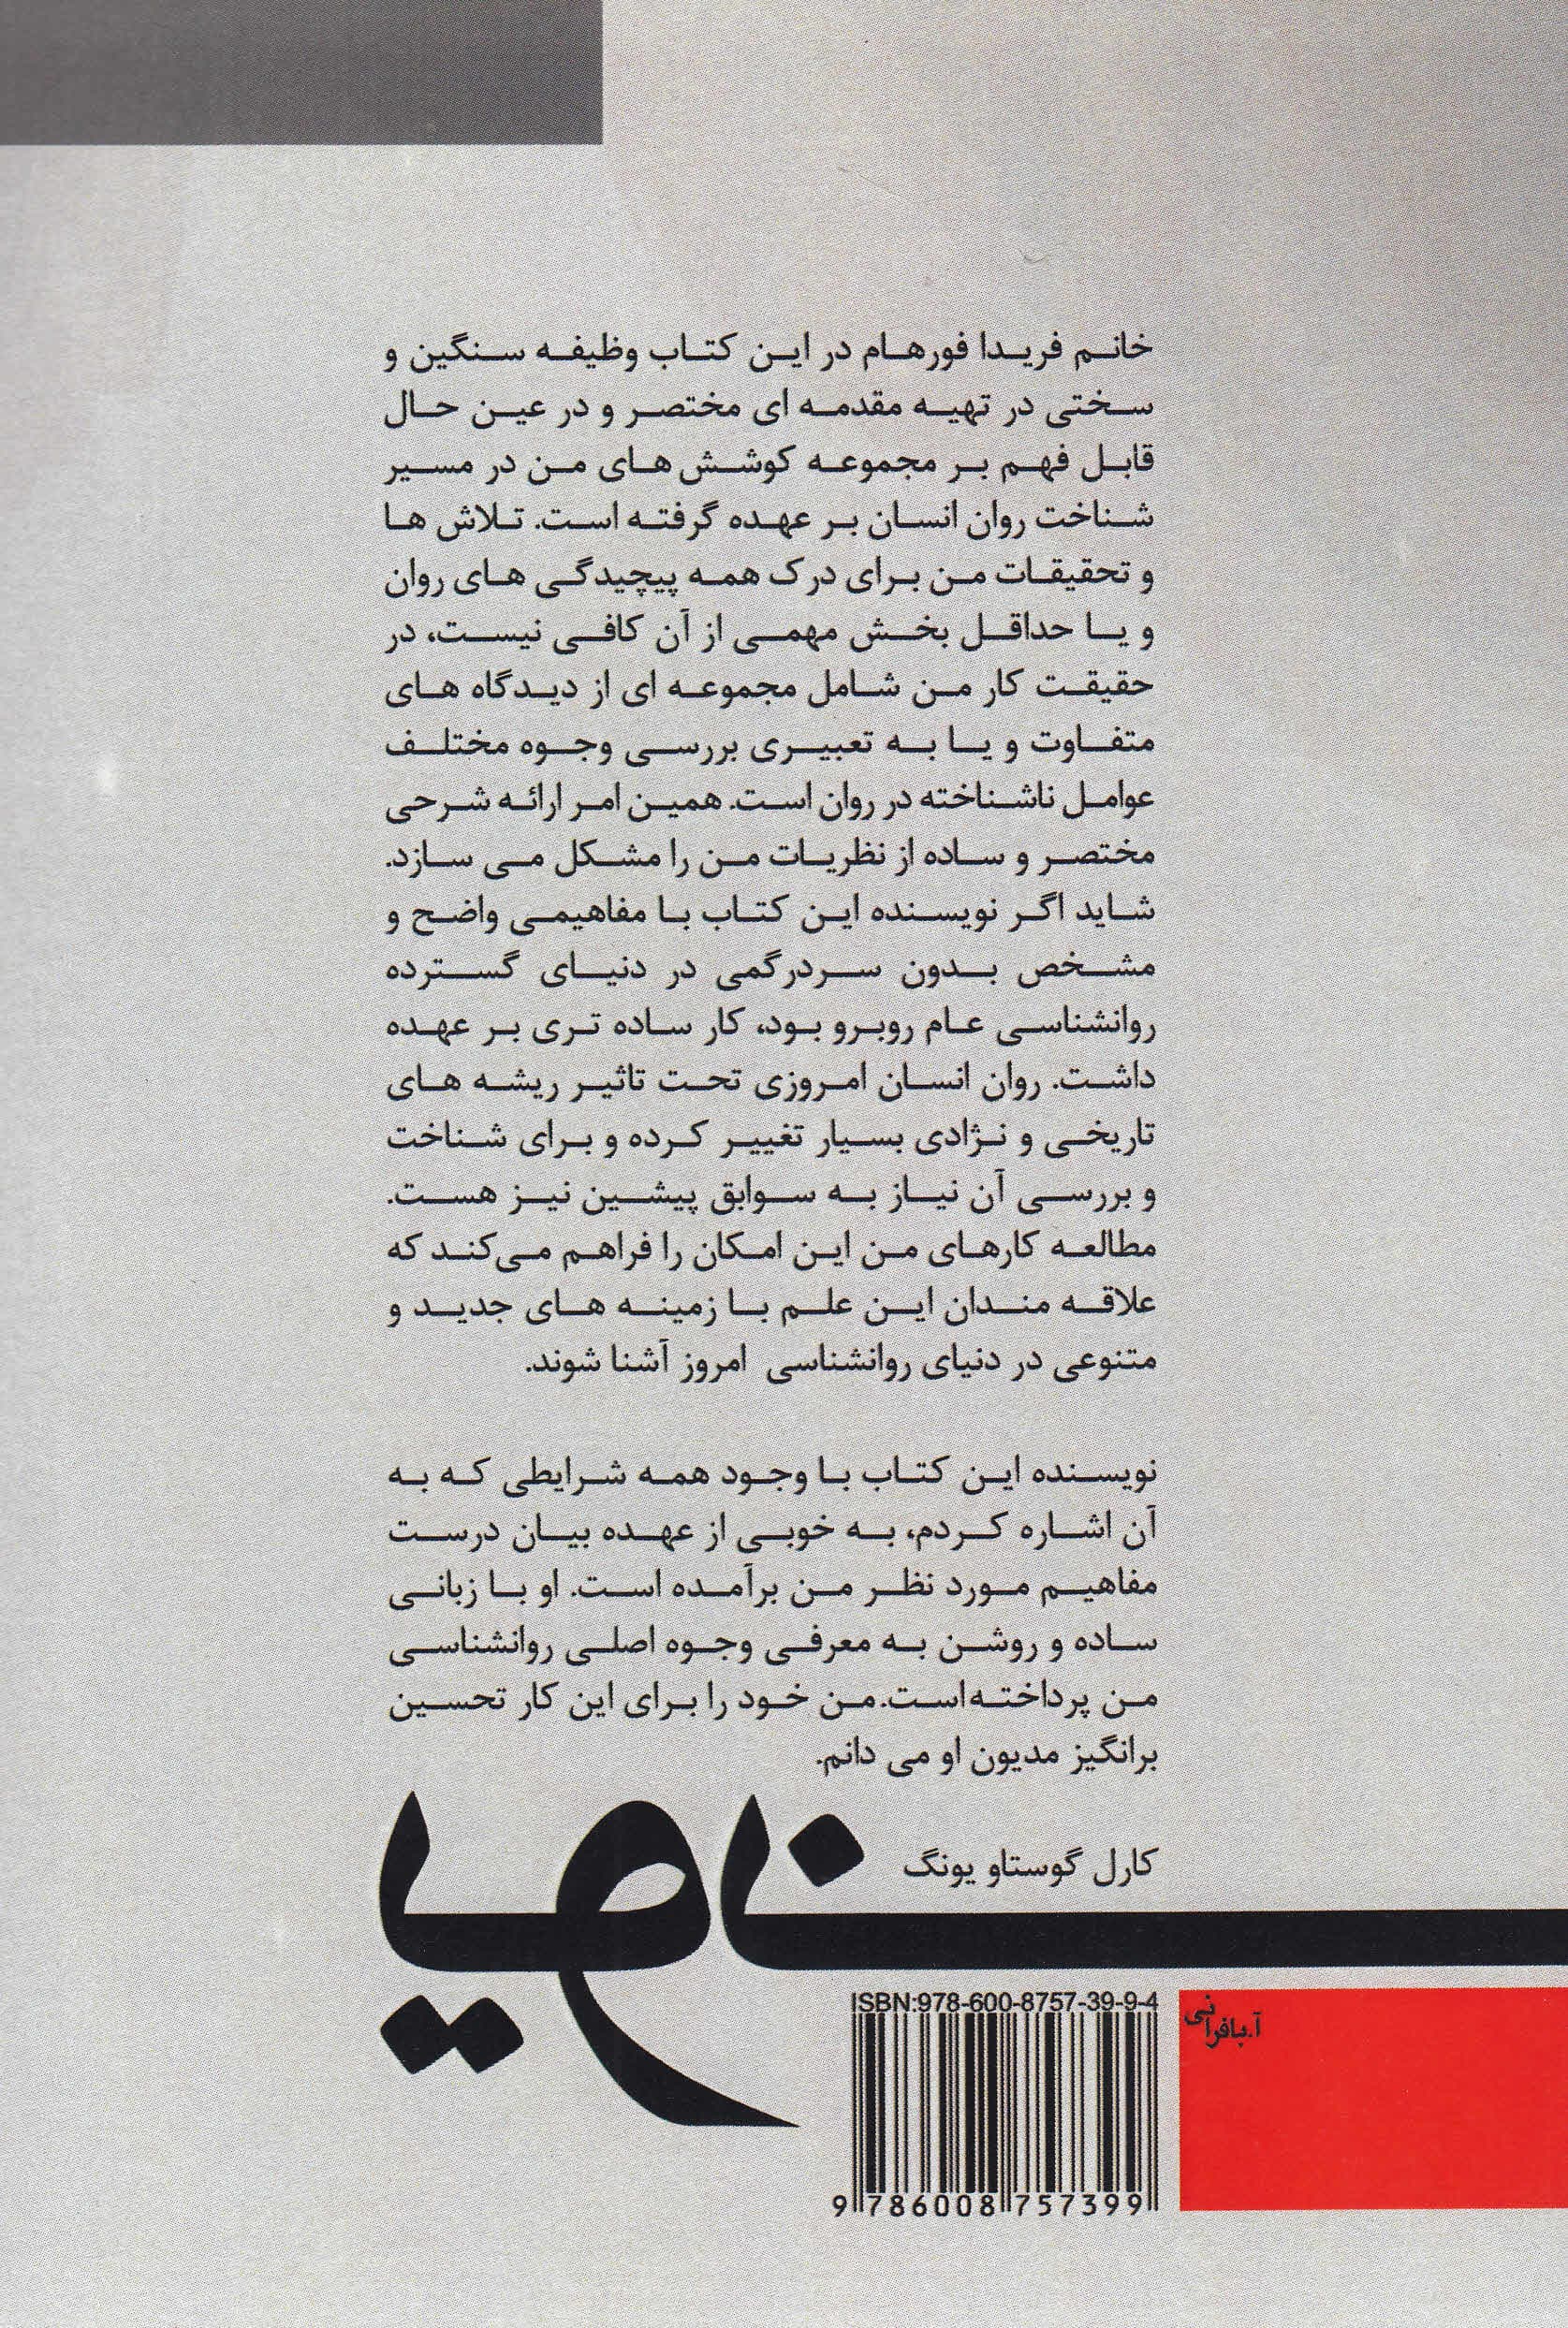 خانم فریدا فورهام در این کتاب وظیفه سنگین و
سختی در تهیه مقدمه ای مختصر و در عین حال
قابل فهم بر مجموعه کوشش های من در مسیر
شناخت روان انسان بر عهده گرفته است. تلاش ها
و تحقیقات من برای درک همه پیچیدگی های روان
و یا حداقل بخش مهمی از آن کافی نیست، در
حقیقت کار من شامل مجموعه ای از دیدگاه های
متفاوت و یا به تعبیری بررسی وجوه مختلف
عوامل ناشناخته در روان است. همین امر ارائه شرحی
مختصر و ساده از نظریات من را مشکل می سازد.
شاید اگر نویسنده این کتاب با مفاهیمی واضح و
مشخص بدون سردرگمی در دنیای گسترده
روانشناسی عام روبرو بود، کار ساده تری بر عهده
داشت. روان انسان امروزی تحت تاثیر ریشه های
تاریخی و نژادی بسیار تغییر کرده و برای شناخت
و بررسی آن نیاز به سوابق پیشین نیز هست.
مطالعه کارهای من این امکان را فراهم می‌کند که
علاقه مندان این علم با زمینه های جدید و
متنوعی در دنیای روانشناسی امروز آشنا شوند.
نویسنده این کتاب با وجود همه شرایطی که به
آن اشاره کردم، به خوبی از عهده بیان درست
مفاهیم مورد نظر من برآمده است. او با زبانی
ساده و روشن به معرفی وجوه اصلی روانشناسی
من پرداخته‌است. من خود را برای این کار تحسین
برانگیز مدیون او می دانم.
کارل گوستاو یونگ
ISBN:978-600-8757-39-9-4
آ.بافرانی
9 786008 757399